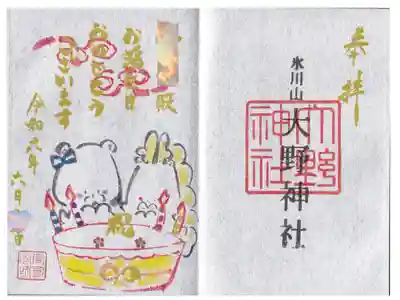 奉拝
氷川山
大野神社
大野神社
殿
お誕生日
おめでとう
ございます
令和六年
六月
日
祝